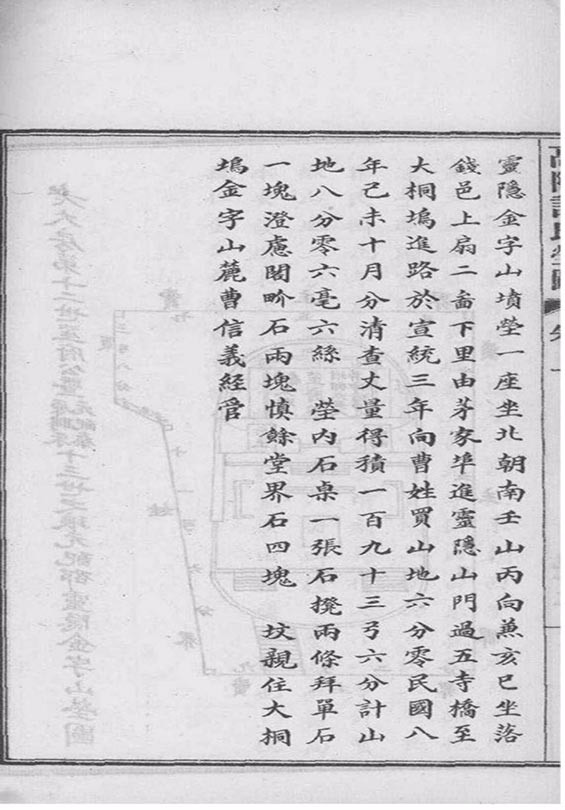 靈隱金字山墳塋一座坐北朝南壬山丙向兼亥巳坐落
錢邑上扇二啚下里由茅家埠進靈隱山門過五寺橋至
大桐塢進路於宣統三年向曹姓買山地六分零民國八
年己未十月分清查丈量得積一百九十三弓六分計山
地八分零六毫六絲　塋內石桌一張石櫈兩條拜單石
一塊澄慮閣界石兩塊慎餘堂界石四塊　墳親住大桐
塢金字山麓曹信義經管